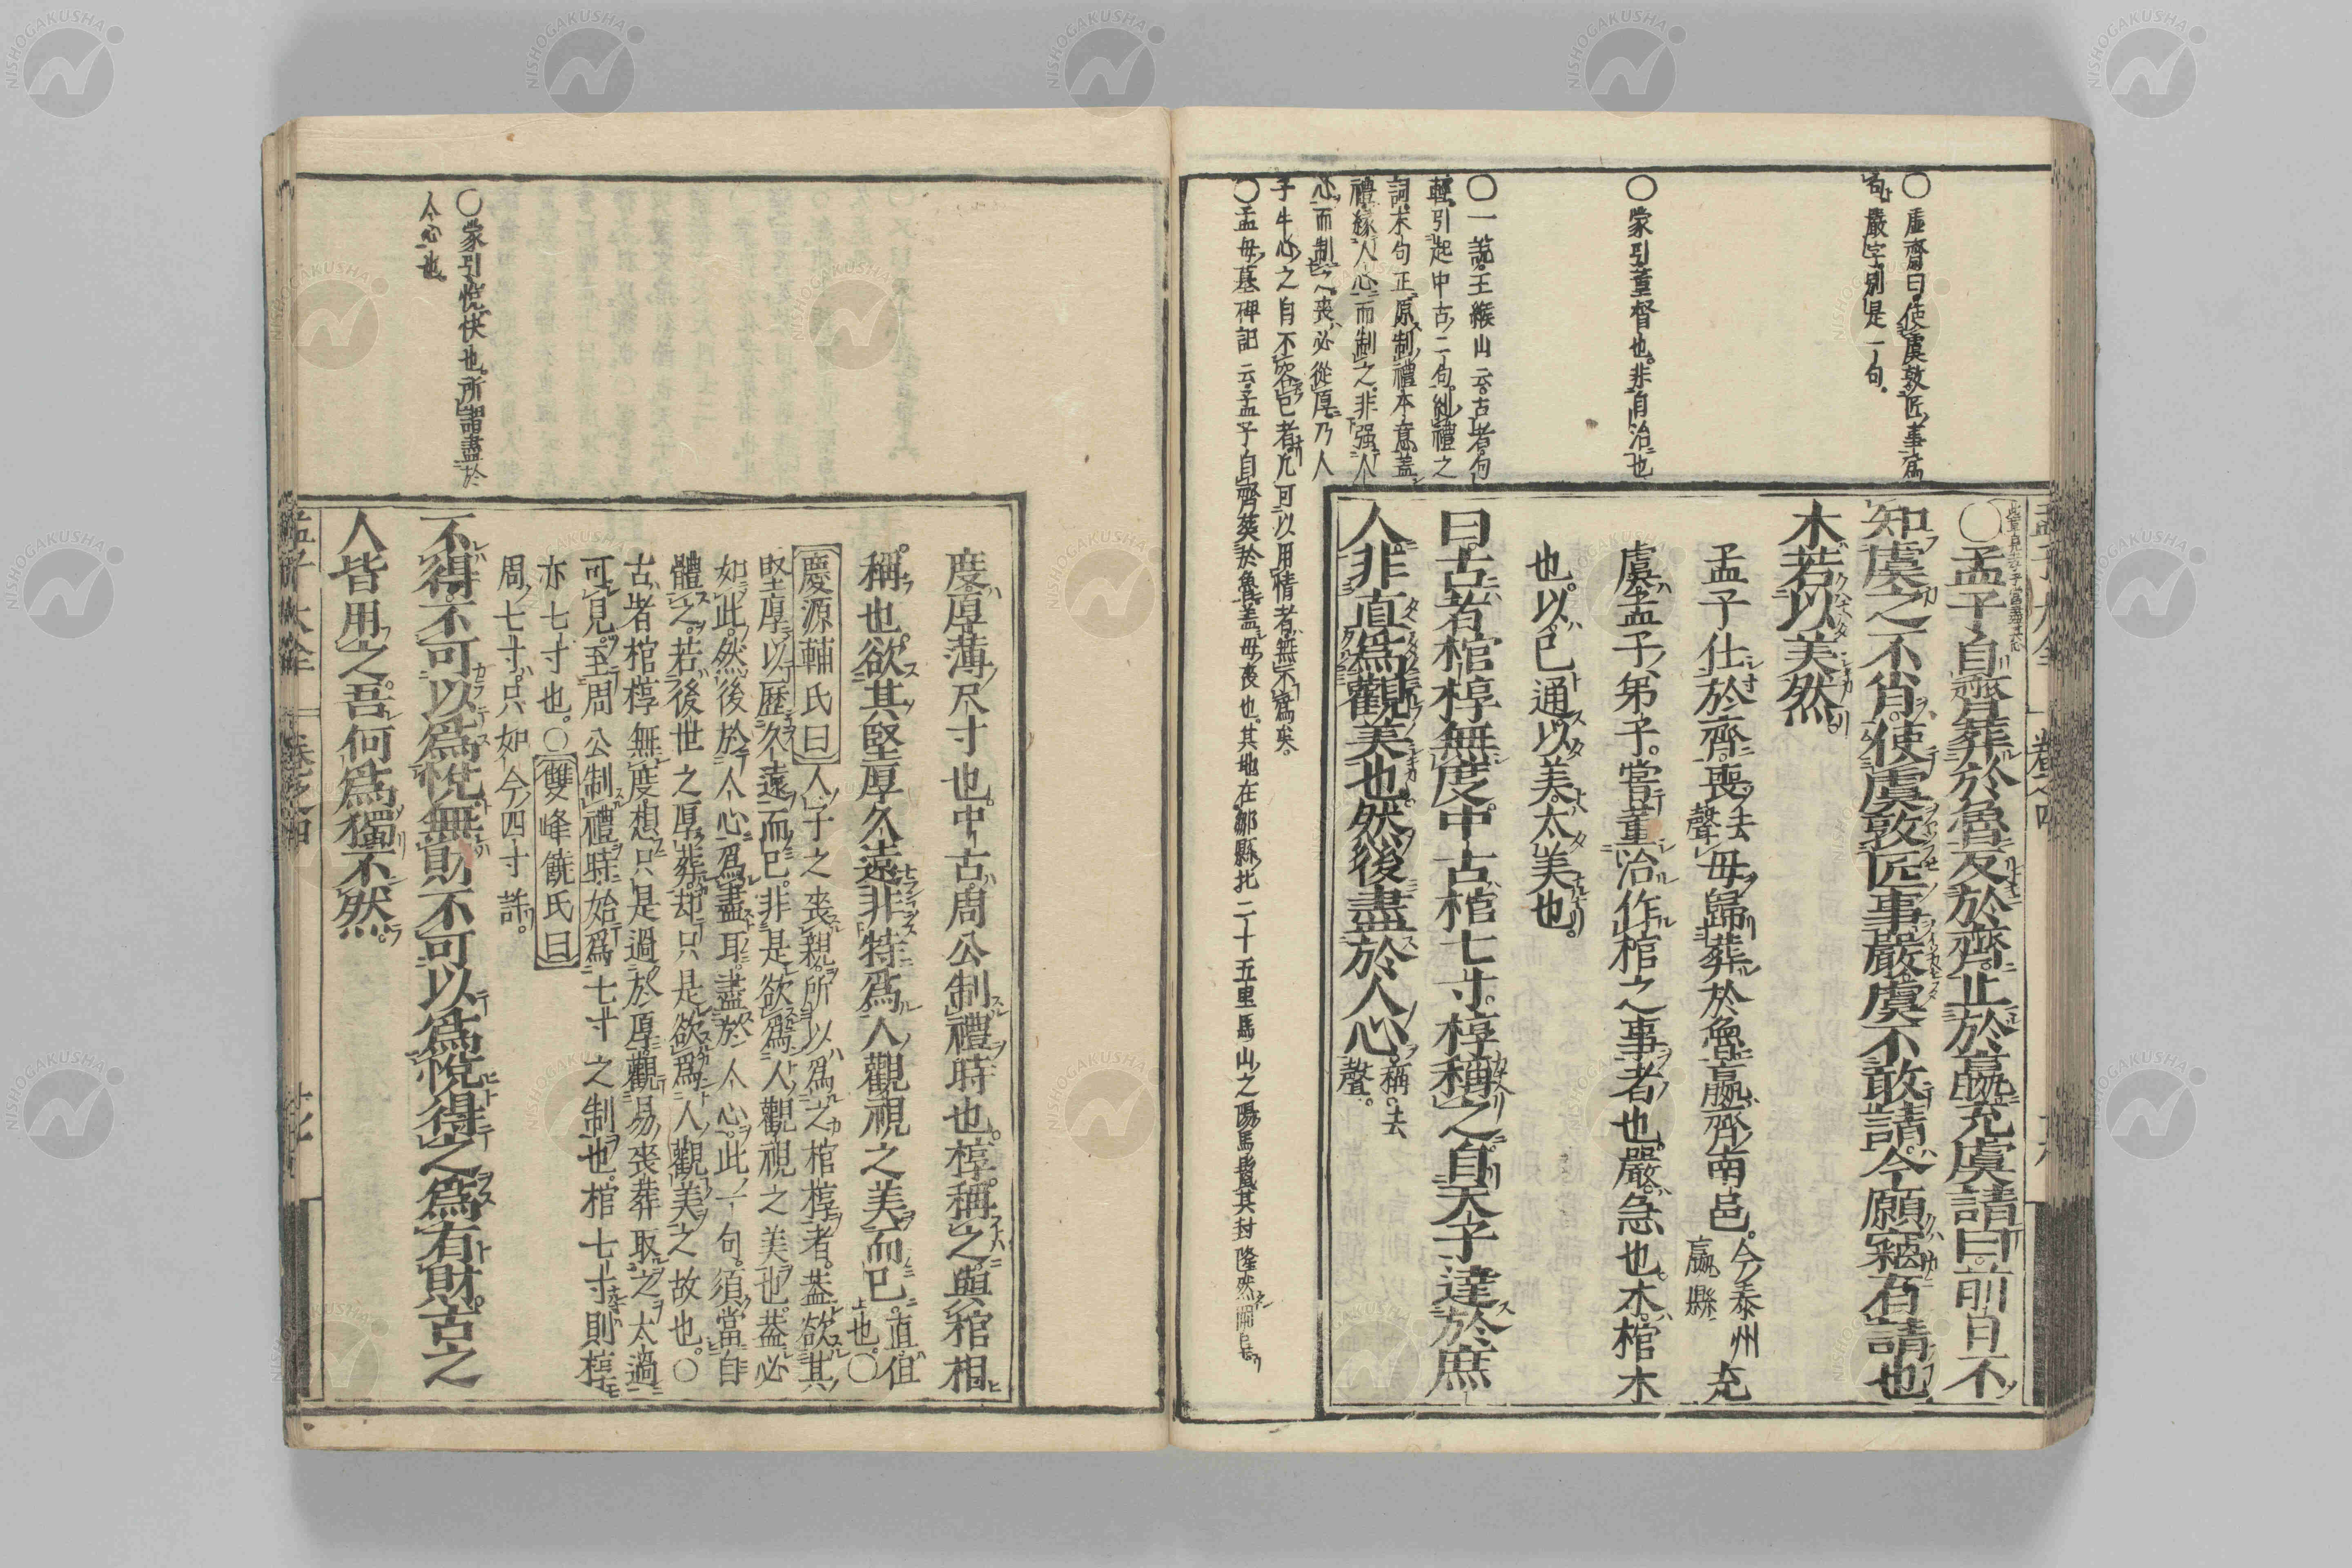 ○虛齋曰使虞敦匠事爲
句嚴字別是一句
○蒙引董督也非自治也
○一說王緱山云古者句
輕引起中古二句糾禮之
詞末句正原制禮本意蓋
禮緣人心而制之非强人
心而制之喪必從厚乃人
子牛心之自不容已者凡可以用情者無不爲矣
○孟母墓碑記云孟子自齊葬於魯盖母喪也其地在鄒縣北二十五里馬山之陽馬鬣其封隆然
○孟子自齊葬於魯反於齊止於嬴充虞請曰前日不
知虞之不肖使虞敦匠事嚴虞不敢請今願竊有請也
木若以美然
孟子仕於齊喪去聲母歸葬於魯嬴齊南邑今泰州嬴縣充
虞孟子弟子嘗董治作棺之事者也嚴急也木棺木
也以已通以美太美也
曰古者棺椁無度中古棺七寸椁稱之自天子達於庶
人非直爲觀美也然後盡於人心稱去聲
度厚薄尺寸也中古周公制禮時也椁稱之與棺相
稱也欲其堅厚久遠非特爲人觀視之美而已直但也○
慶源輔氏曰人子之喪親所以爲之棺椁者蓋欲其
堅厚以歷久遠而已非是欲爲人觀視之美也蓋必
如此然後於人心爲盡耳盡於人心此一句須當自
體之若後世之厚葬却只是欲爲人觀美之故也○
古者棺椁無度想只是過於厚觀易喪葬取之大過
可見至周公制禮時始爲七寸之制也棺七寸則椁
亦七寸也○雙峰饒氏曰
周七寸只如今四寸許
不得不可以爲悅無財不可以爲悅得之爲有財古之
人皆用之吾何爲獨不然
○蒙引悅快也所謂盡於
人心也